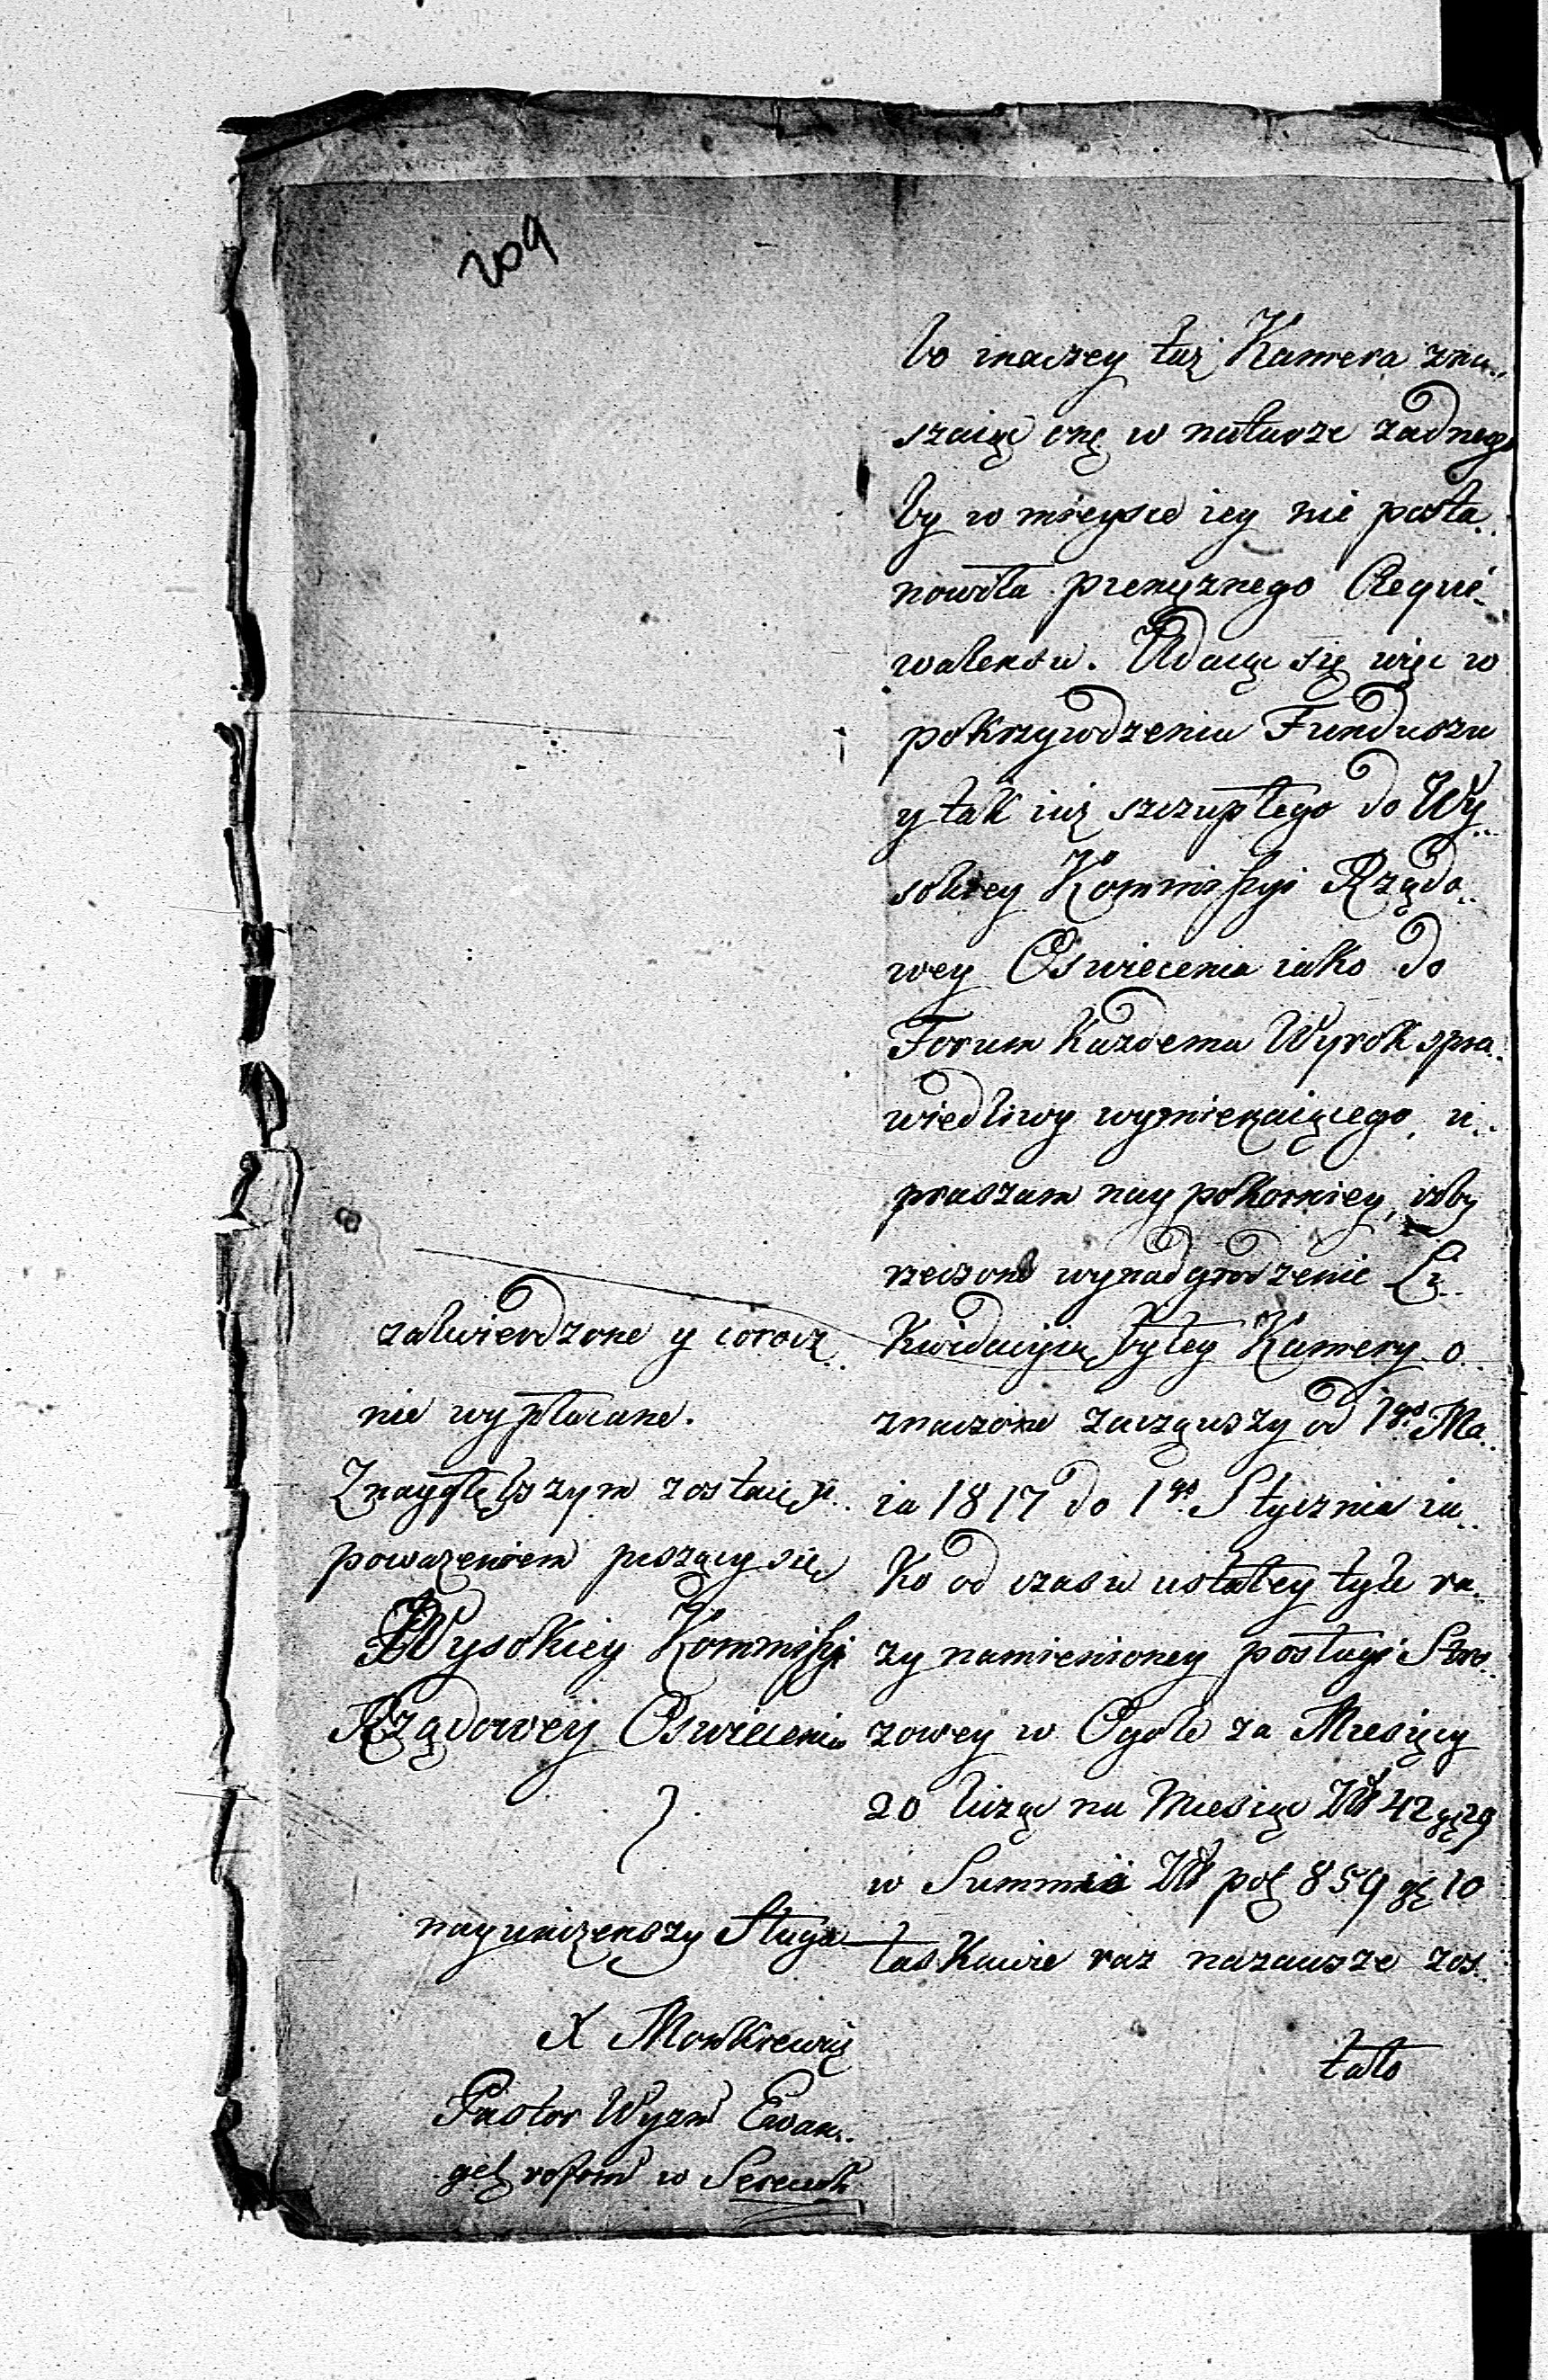 209
bo inaczey taż Kamera znu„
szaiąc onę w naturze żadnego
by w mieysce iey nie posta„
nowiła pieniężnego Aequi„
walensu. Udaiąc się więc w
pokrzywdzeniu Funduszu
y tak iuż szczupłego do Wy„
sokiey Kommissyi Rządo„
wey Oswiecenia iako do
Forum każdemu Wyrok spra„
wiedliwy wymierzaiącego, u„
praszam naypokorniey, iżby
rzeczone wynadgrodzenie Li„
kwidacyią byłey Kamery o„
znaczone zacząwszy od 1go Ma„
ia 1817 do 1go Stycznia ia„
ko od czasu ustałey tyle ra„
zy namienioney posługi Stro„
żowey w Ogole za Miesięcy
20 licząc na Miesiąc Zł 42 gr 29
w Summie Zł pol 859 gr 10
łaskawie raz nazawsze zos„
tało
zatwierdzone y corocz„
nie wypłacane.
Z naygłębszym zostaię u„
poważeniem piszący się
Wysokiey Kommissyi
Rządowey Oswiecenia
nayuniżenszy Sługa
X Monkiewicz
Pastor Wyzn Ewan„
gel reform w Sereiach